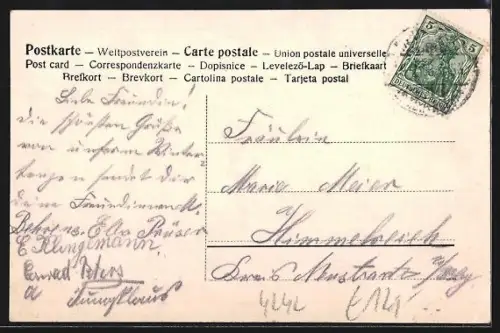 Postkarte – Weltpostverein – Carte postale – Union postale universelle
Post card – Correspondenzkarte – Dopisnice – Levelező-Lap – Briefkaart
Brefkort – Brevkort – Cartolina postale – Tarjeta postal
Liebe Freundin!
die schönsten Grüße
von unserm Winter
sendet dir
deine Freundin
Behrens Elta
E. Klingemann
Conrad Peters
Jungklaus
5 5
Fräulein
Marie Meier
Himmelreich
Kreis Neustadt
4242
£124